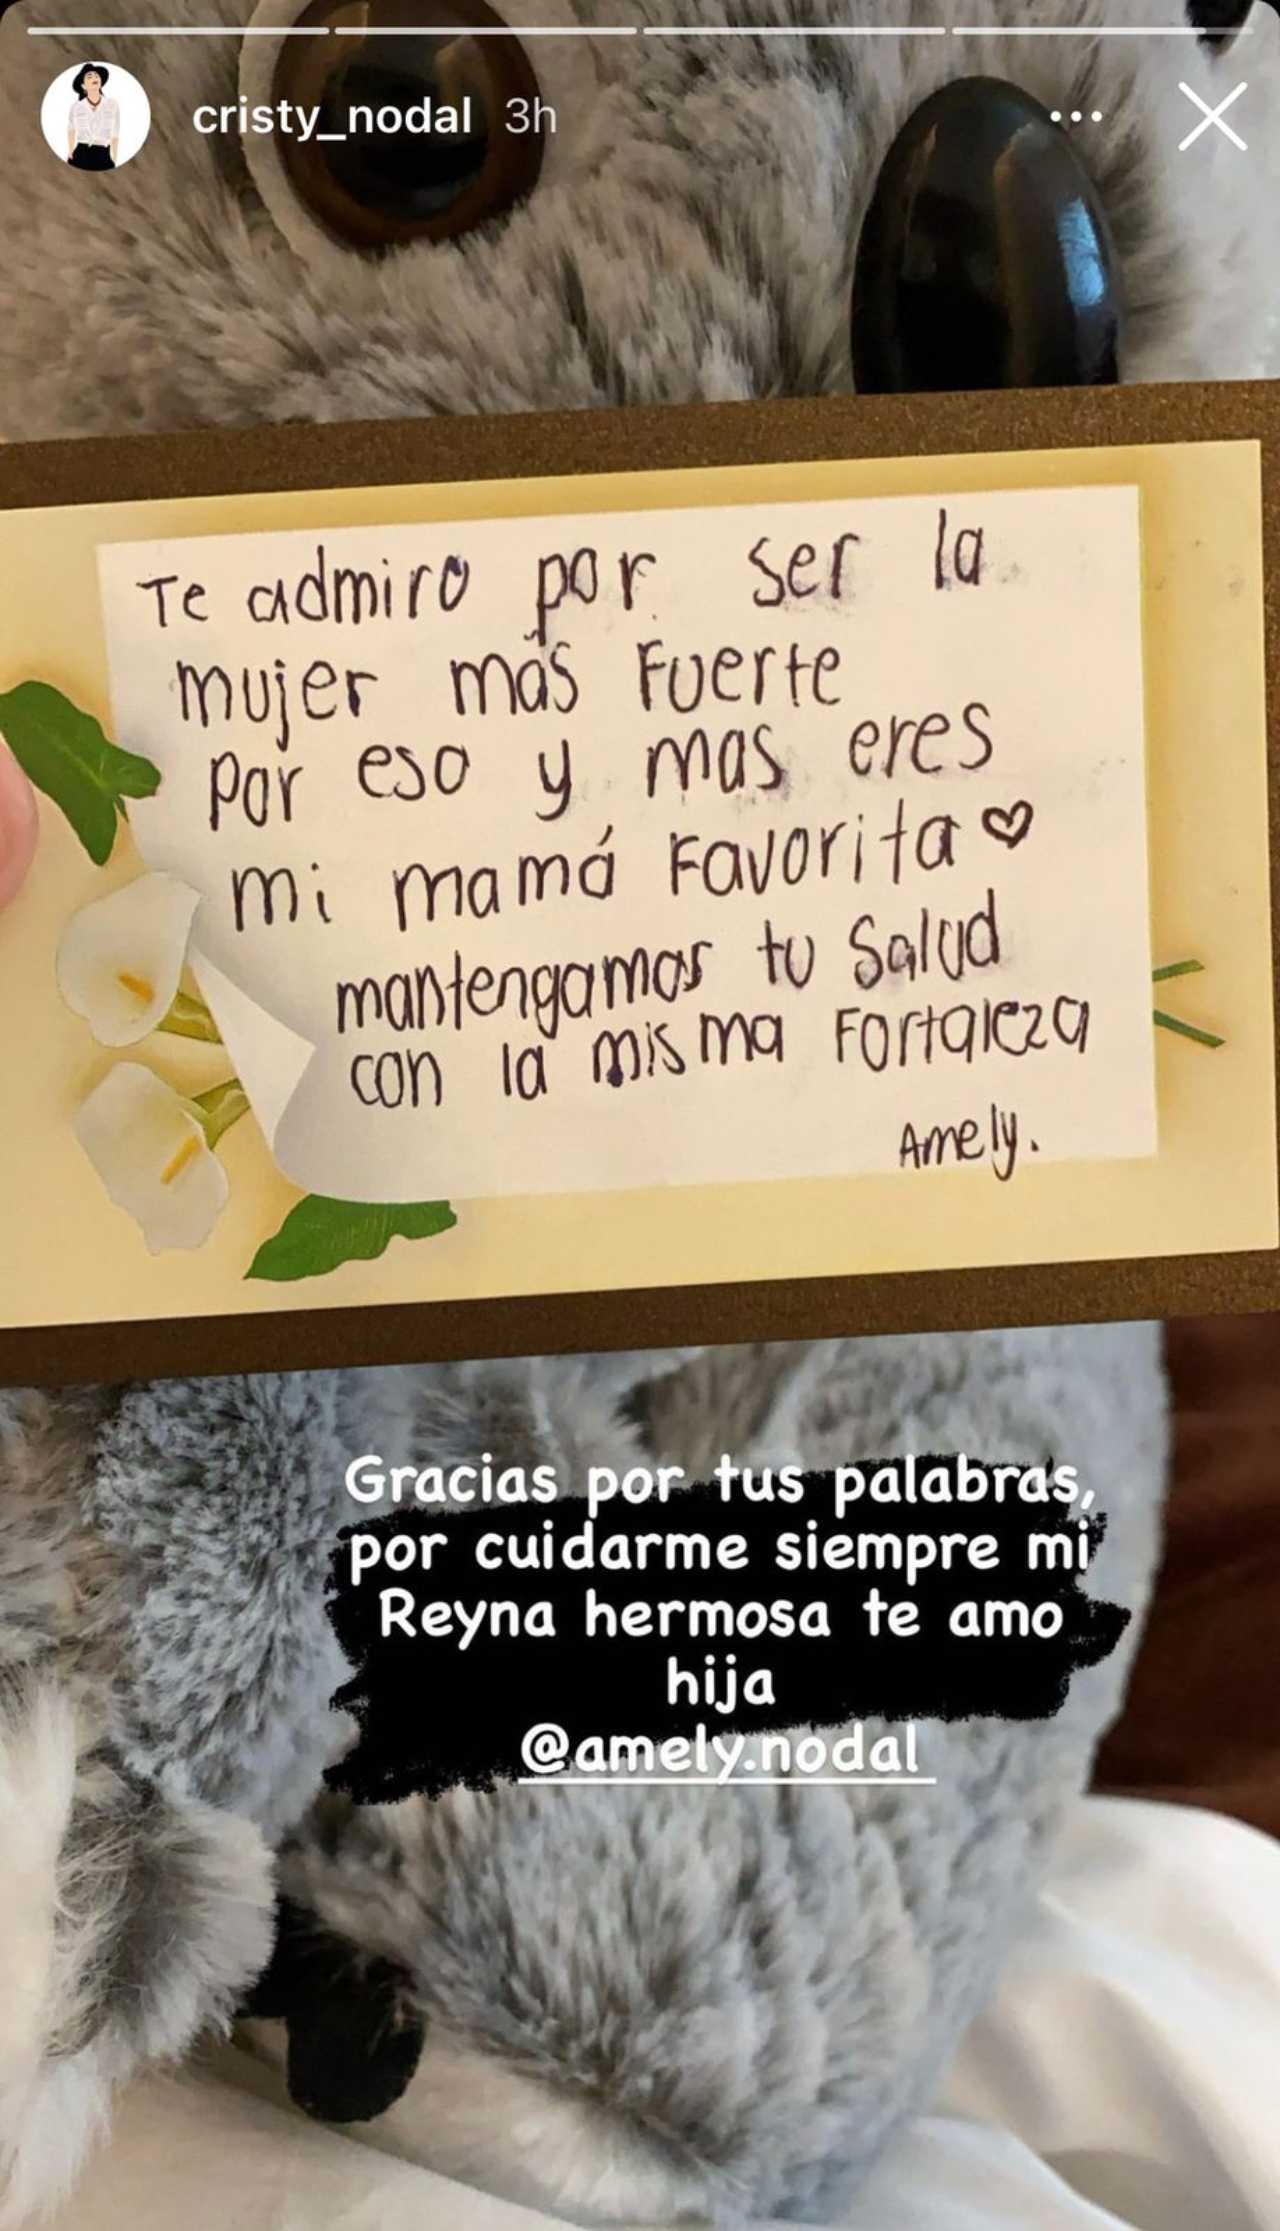 cristy_nodal 3h
Te admiro por ser la
mujer más Fuerte
por eso y mas eres
mi mamá Favorita ♡
mantengamos tu Salud
con la misma Fortaleza
Amely.
Gracias por tus palabras,
por cuidarme siempre mi
Reyna hermosa te amo
hija
@amely.nodal